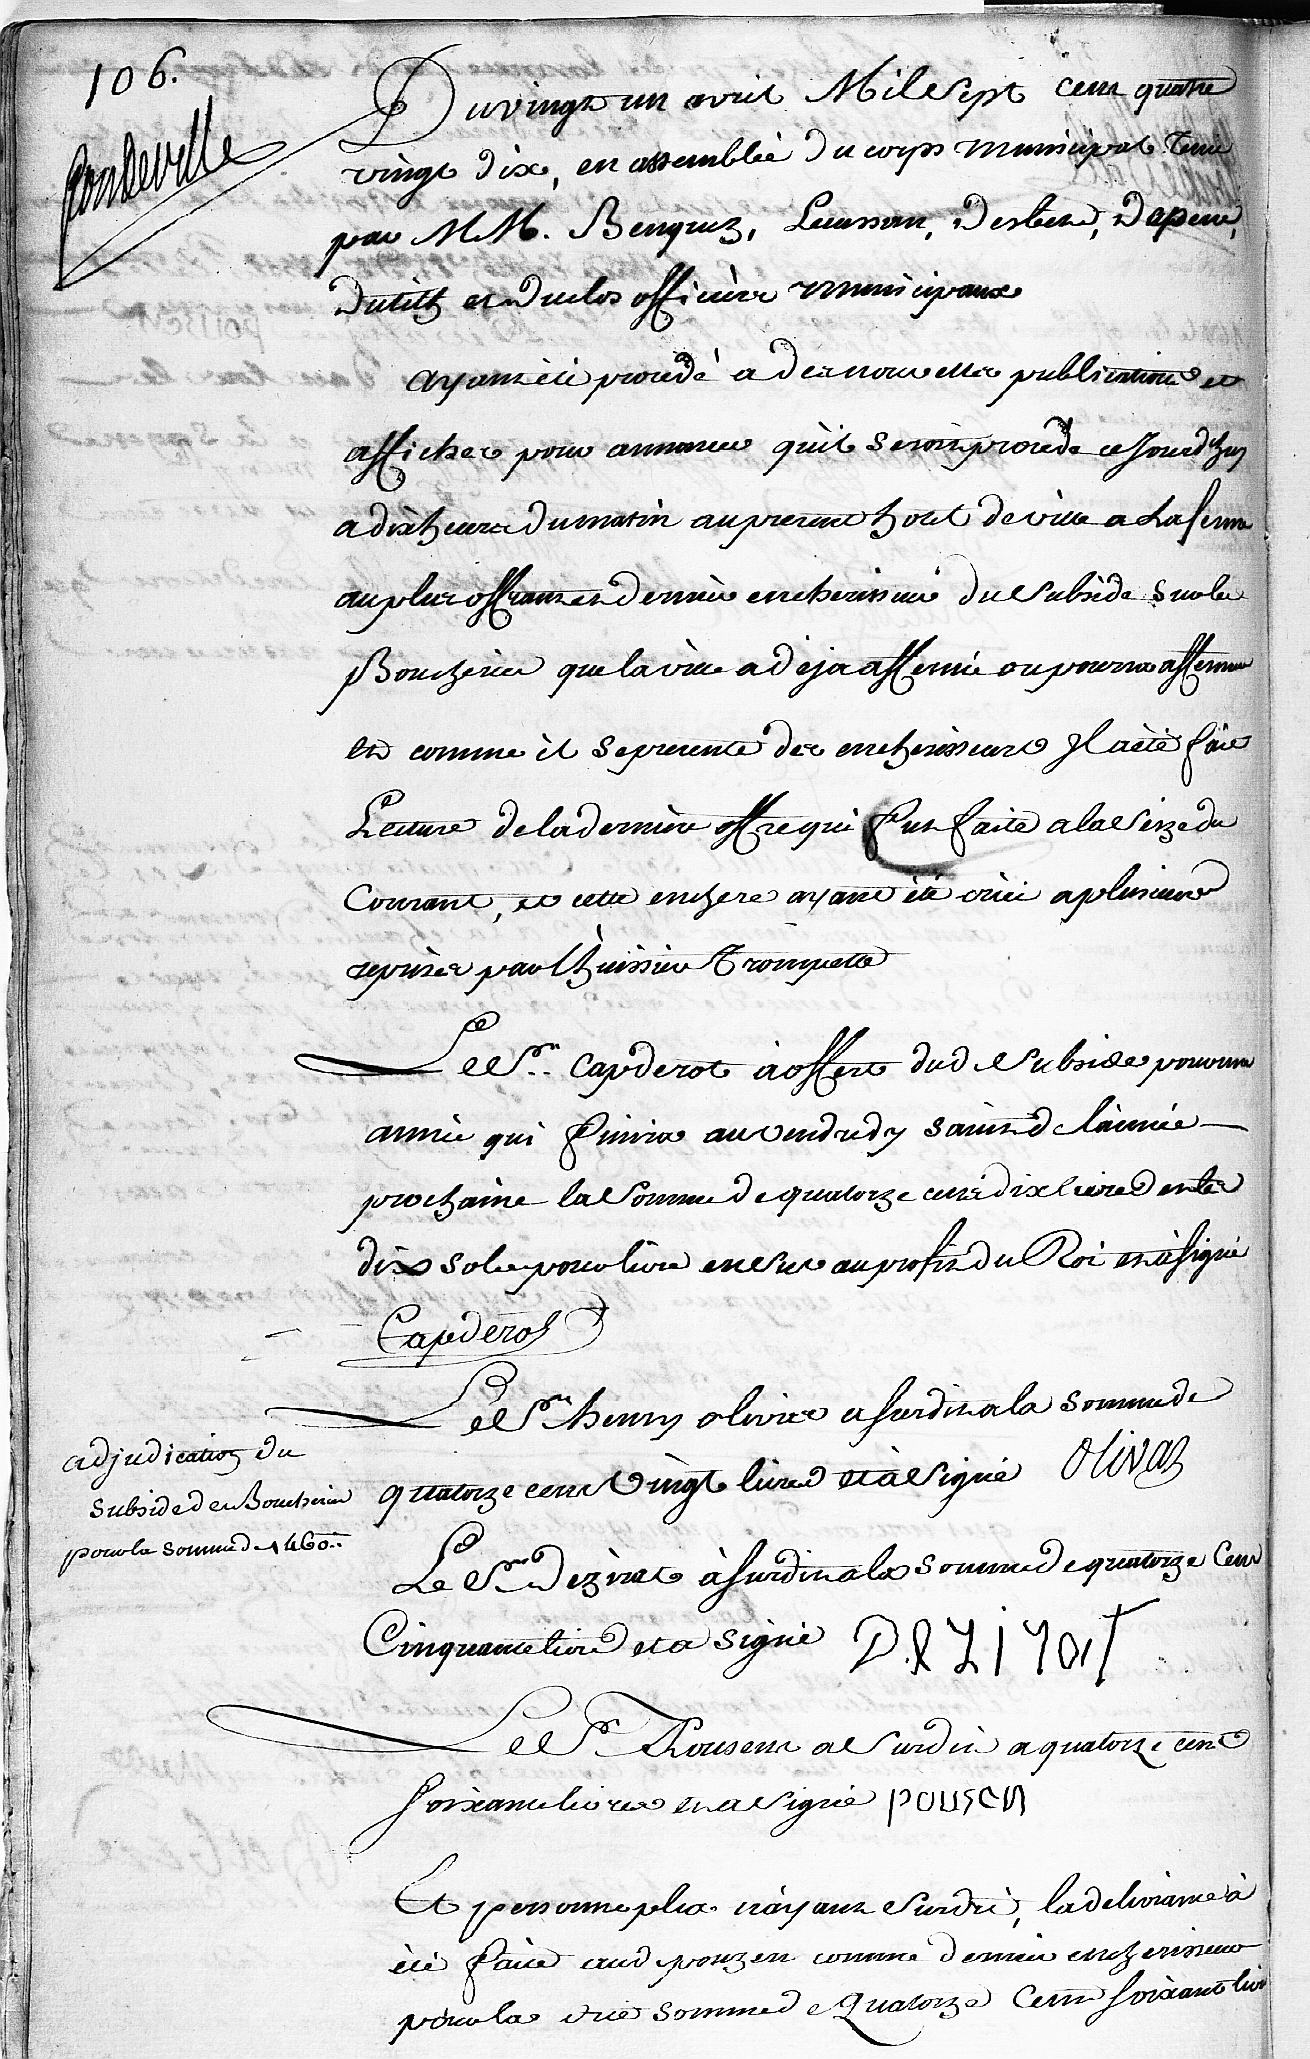 106.
Du vingt un avril Mil Sept cent quatre
vingt dix, en assemblée du corps municipal tenue
par MM. Benquez, Lausson, Desbets, Dapeire,
Dutilh et Duclos officiers municipaux
ayant été procédé a des nouvelles publications et
affiches pour annoncer quil seroit procédé ce Jourdhuy
a dix heures du matin au present hotel de ville a La ferme
au plus offrant et dernier encherisseur du Subside sur les
Boucheries que la ville a deja affermé ou pourra affermer
et comme il se presente des encherisseurs Il a été fait
Lecture de la dernière offre qui fut faite a la Seize du
Courant, et cette enchere ayant été criée a plusieurs
reprises par lhuissier Trompette
Le Sr. Capderot à offert dud Subside pour une
année qui finira au vendredy saint de l'année
prochaine la Somme de quatorze cens dix livres et les
dix sols pour livre en sus au profit du Roi et à signé
Capderos
Le Sr henry olivier a surdit a la somme de
quatorze cent vingt livres et à Signé Olivar
adjudication du
subside des Boucheries
pour la somme de 1460..
Le Sr Dezirat à surdit a la somme de quatorze Cent
Cinquante livres et a signé Dezirat
Le Sr Pousent a Surdit a quatorze cent
soixante livres et a Signé pousen
Et personne plus n'ayant Surdit, la delivrance à
été faite aud pouzen comme dernier encherisseur
pour la susd somme de Quatorze Cent soixante livres